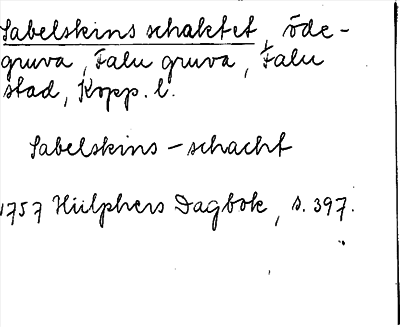 Sabelskins schaktet, öde-
gruva, Falu gruva, Falu
stad, Kopp. l.
Sabelskins - schacht
1757 Hülphers Dagbok, s. 397.